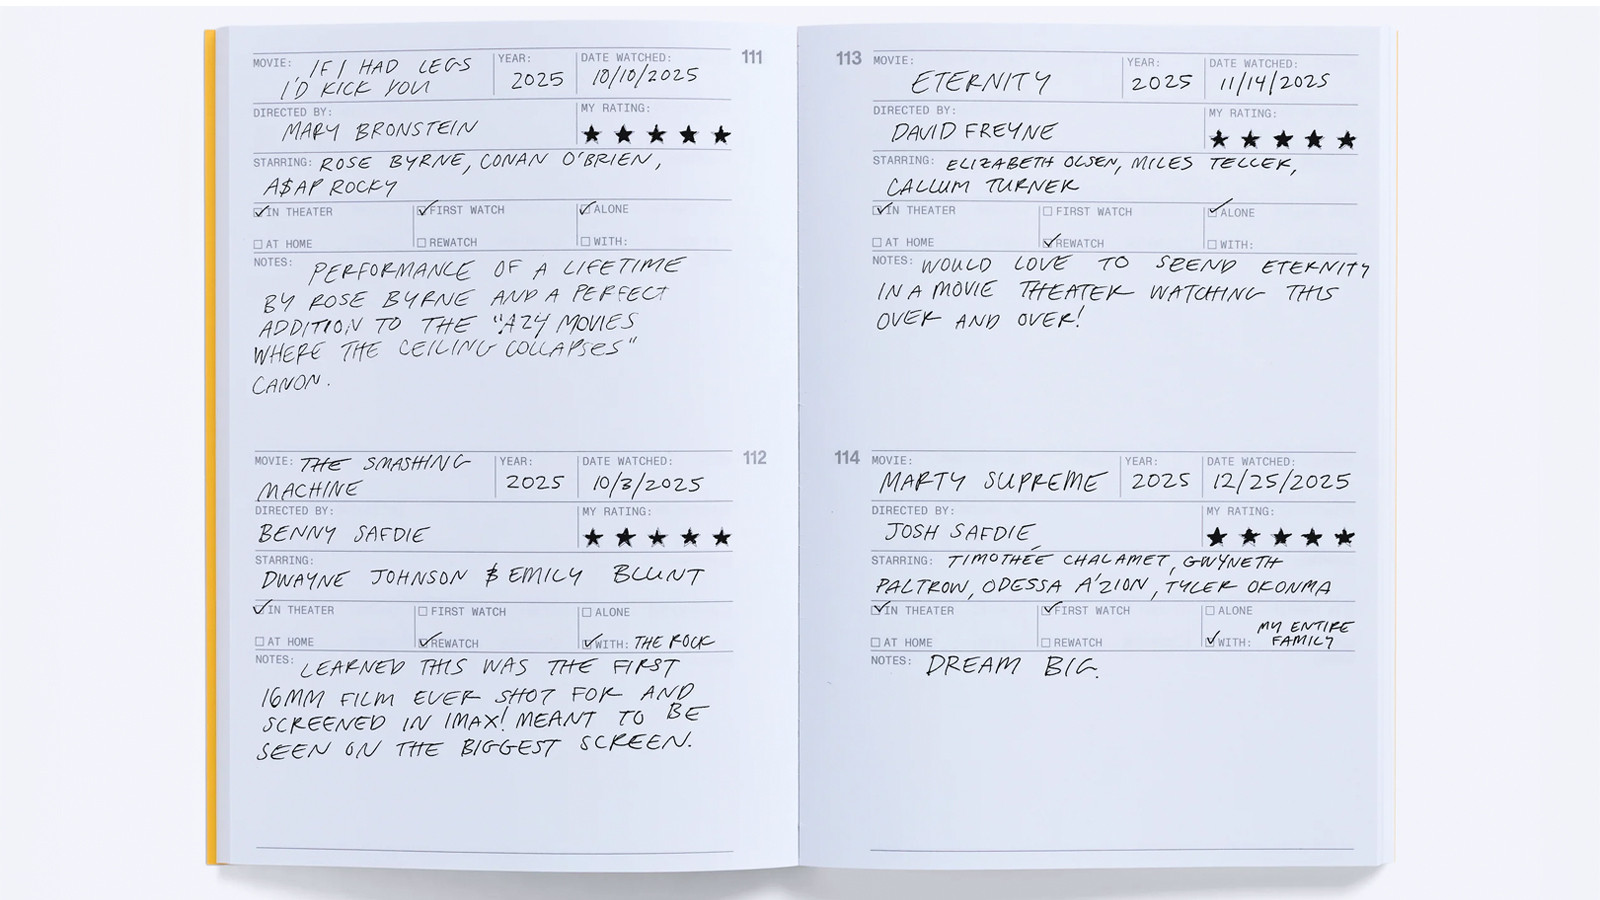 MOVIE: IF I HAD LEGS
I'D KICK YOU
YEAR:
2025
DATE WATCHED:
10/10/2025
111
DIRECTED BY:
MARY BRONSTEIN
MY RATING:
★ ★ ★ ★ ★
STARRING: ROSE BYRNE, CONAN O'BRIEN,
A$AP ROCKY
IN THEATER
FIRST WATCH
ALONE
AT HOME
REWATCH
WITH:
NOTES: PERFORMANCE OF A LIFETIME
BY ROSE BYRNE AND A PERFECT
ADDITION TO THE "A24 MOVIES
WHERE THE CEILING COLLAPSES"
CANON.
MOVIE: THE SMASHING
MACHINE
YEAR:
2025
DATE WATCHED:
10/3/2025
112
DIRECTED BY:
BENNY SAFDIE
MY RATING:
★ ★ ★ ★ ★
STARRING:
DWAYNE JOHNSON & EMILY BLUNT
IN THEATER
FIRST WATCH
ALONE
AT HOME
REWATCH
WITH: THE ROCK
NOTES: LEARNED THIS WAS THE FIRST
16MM FILM EVER SHOT FOR AND
SCREENED IN IMAX! MEANT TO BE
SEEN ON THE BIGGEST SCREEN.
113
MOVIE:
ETERNITY
YEAR:
2025
DATE WATCHED:
11/14/2025
DIRECTED BY:
DAVID FREYNE
MY RATING:
★ ★ ★ ★ ★
STARRING: ELIZABETH OLSEN, MILES TELLER,
CALLUM TURNER
IN THEATER
FIRST WATCH
ALONE
AT HOME
REWATCH
WITH:
NOTES: WOULD LOVE TO SPEND ETERNITY
IN A MOVIE THEATER WATCHING THIS
OVER AND OVER!
114
MOVIE:
MARTY SUPREME
YEAR:
2025
DATE WATCHED:
12/25/2025
DIRECTED BY:
JOSH SAFDIE
MY RATING:
★ ★ ★ ★ ★
STARRING: TIMOTHÉE CHALAMET, GWYNETH
PALTROW, ODESSA A'ZION, TYLER OKONMA
IN THEATER
FIRST WATCH
ALONE
AT HOME
REWATCH
WITH: MY ENTIRE
FAMILY
NOTES: DREAM BIG.